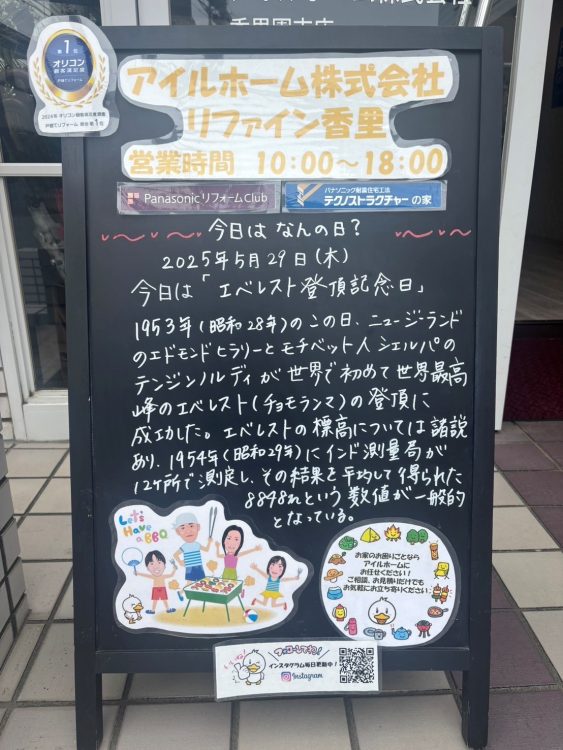 香里園本店
第1位
オリコン
顧客満足度
戸建てリフォーム
2024年 オリコン顧客満足度調査
戸建てリフォーム 総合 第1位
アイルホーム株式会社
リファイン香里
営業時間 10:00～18:00
Panasonic リフォームClub
パナソニック耐震住宅工法
テクノストラクチャーの家
今日は なんの日?
2025年5月29日(木)
今日は「エベレスト登頂記念日」
1953年(昭和28年)のこの日、ニュージーランド
のエドモンドヒラリーとモチベット人シェルパの
テンジンノルディが世界で初めて世界最高
峰のエベレスト(チョモランマ)の登頂に
成功した。エベレストの標高については諸説
あり、1954年(昭和29年)にインド測量局が
12ヶ所で測定し、その結果を平均して得られた
8848mという数値が一般的
となっている。
Let's
Have
a BBQ
お家のお困りごとなら
アイルホームに
お任せください!
ご相談、お見積りだけでも
お気軽にお立ち寄りください
フォローしてね!
インスタグラム毎日更新中!
Instagram